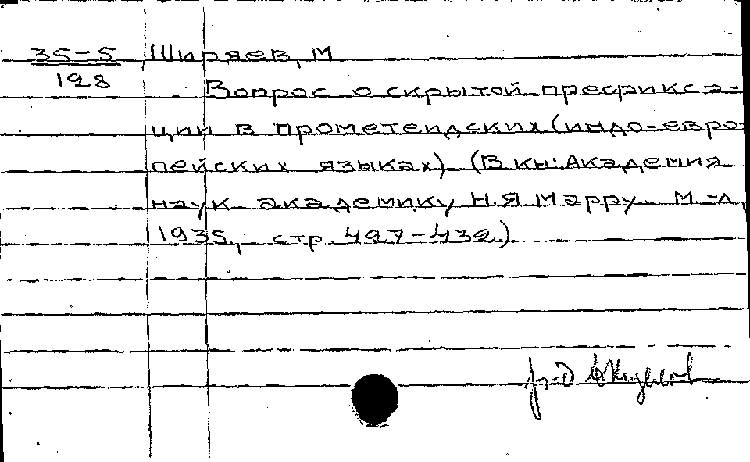 35-5 Ширяев, М
128 Вопрос о скрытой префикса-
ции в прометеидских (индо-евро-
пейских языках) (В кн: Академия
наук академику Н.Я Марру. М-Л,
1935, стр. 427-432.)